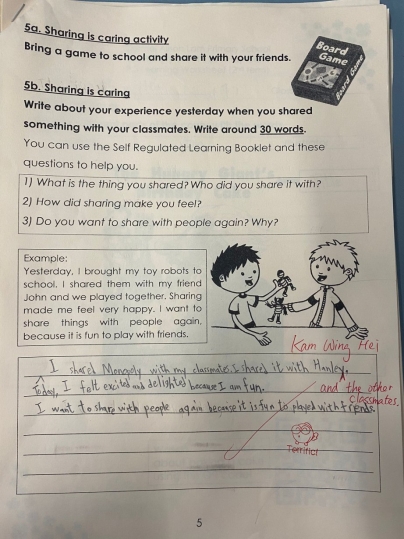 5a. Sharing is caring activity
Bring a game to school and share it with your friends.
Board Game
Board Game
5b. Sharing is caring
Write about your experience yesterday when you shared
something with your classmates. Write around 30 words.
You can use the Self Regulated Learning Booklet and these
questions to help you.
1) What is the thing you shared? Who did you share it with?
2) How did sharing make you feel?
3) Do you want to share with people again? Why?
Example:
Yesterday, I brought my toy robots to
school. I shared them with my friend
John and we played together. Sharing
made me feel very happy. I want to
share things with people again,
because it is fun to play with friends.
Kam Wing Hei
I shared Mongoly with my classmates. I shared it with Hanley
and the other
classmates.
Today, I felt excited and delighted because I am fun.
I want to share with people again because it is fun to played with friends
Terrific!
5